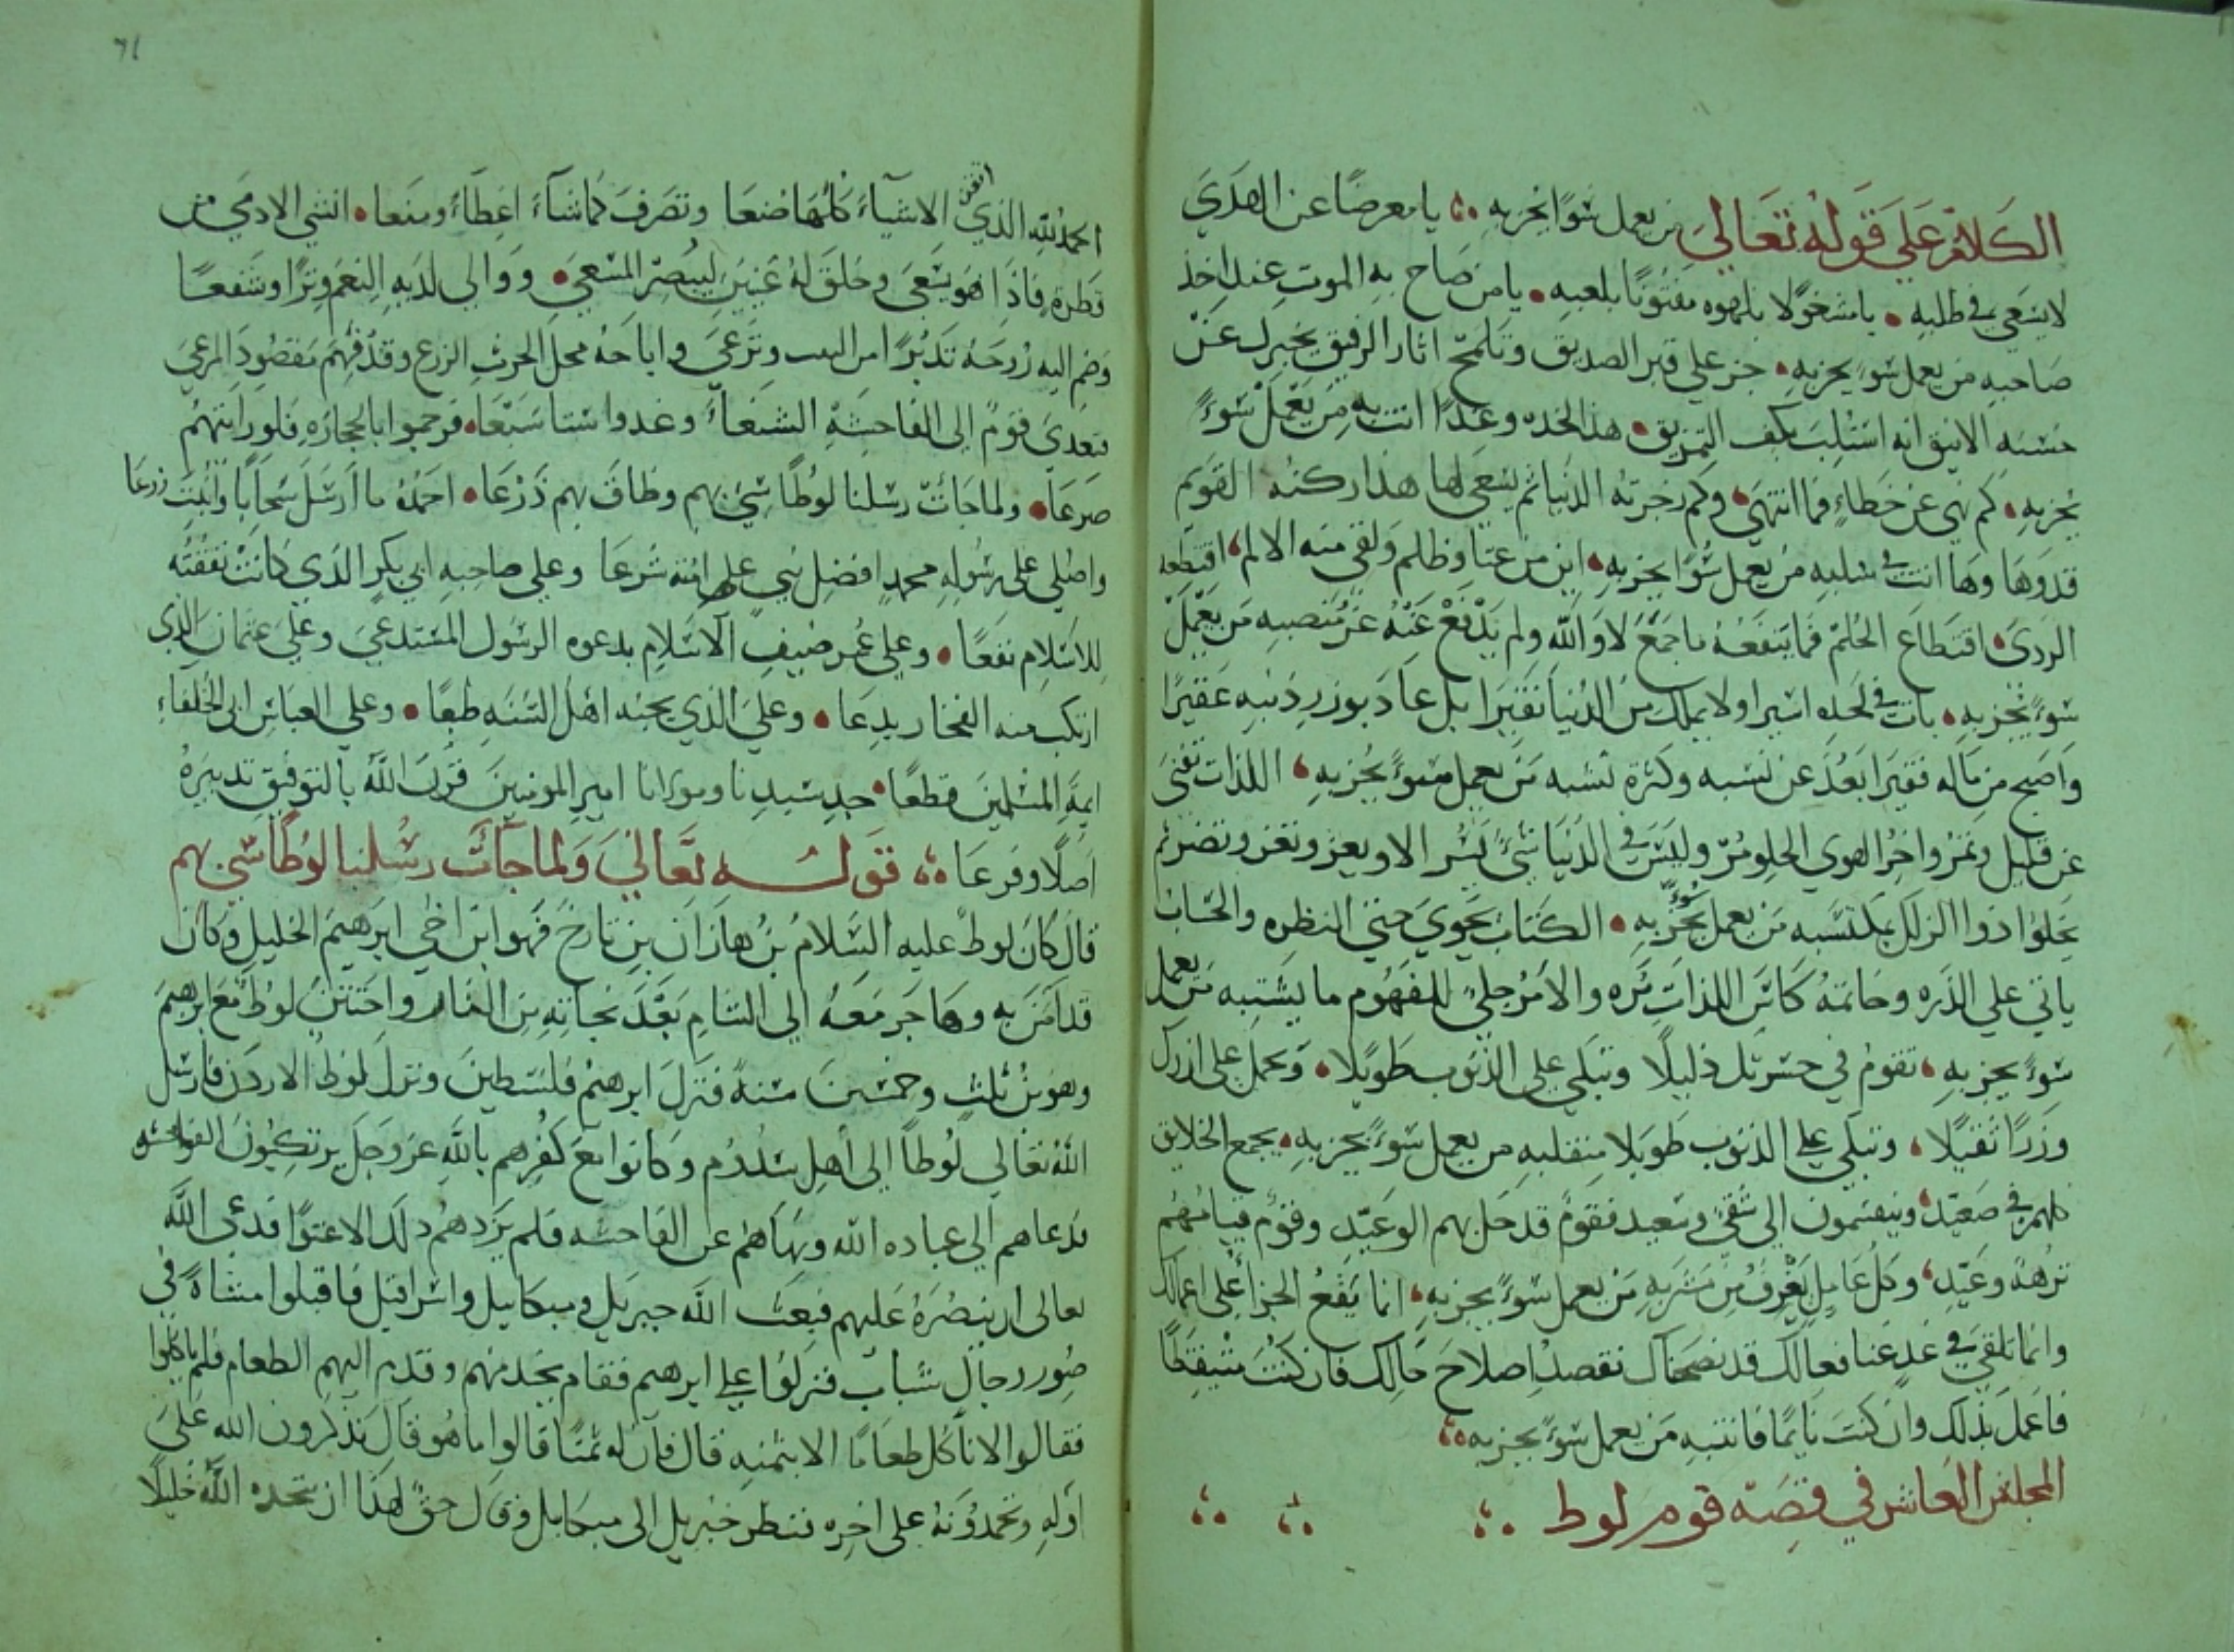 الكلام على قوله تعالى من يعمل سوءا يجز به يا معرضا عن الهدى
لا يسعى في طلبه يا مشغولا بلهوه مفتونا بلعبه يا من صاح به الموت عند اخذ
صاحبه من يعمل سوء يجز به جز على قبر الصديق وتلمح اثار الرفيق يخبرك عن
حسنه الانيق انه استلب بكف التمزيق هذا لحده وغدا انت به من يعمل سوءً
يجز به كم نهي عن خطاءٍ فما انتهى وكم زجرته الدنيا ثم يسعى لها هذا ركنه القويم
قد وها وها انت في سلبه من يعمل سوءا يجز به اين من عتا وظلم ولقي منه الالم اقتطعه
الردى اقتطاع الجلم فما ينفعه ما جمع لا والله ولم يدفع عنه عز منصبه من يعمل
سوءً يجز به بات في لحده اسيرا ولا يملك من الدنيا نقيرا بل عاد بوزر ذنبه عقيرا
واصبح من ماله فقيرا بعد عن نسبه وكثرة نشبه من يعمل سوءً يجز به اللذات تفنى
عن قليل وتمر واخر الهوى الحلو مر وليس في الدنيا شئ يسر الا ويعر وتغر وتضر ثم
يخلوا ذوا الزلل بمكتسبه من يعمل سوءً يجز به الكتاب يحوي حتى النظره والحساب
ياتي على الذره وخاتمة كاس اللذات مره والامر جلي للفهوم ما يشتبه من يعمل
سوءً يجز به تقوم في حشرتك ذليلا وتبكي على الذنوب طويلا وتحمل على ازرك
وزرا ثقيلا وتبكي على الذنوب طويلا من يعمل سوءً يجز به يجمع الخلايق
كلهم في صعيد وينقسمون الى شقي وسعيد فقوم قد حل بهم الوعيد وقوم قيامتهم
نزهة وعيد وكل عامل يغرف من مشربه من يعمل سوءً يجز به انما يقع الجزا على اعمالك
وانما تلقى في غدٍ غب افعالك قد نصحناك نقصد اصلاح مالك فان كنت متيقظا
فاعمل بذلك وان كنت نايما فانتبه من يعمل سوءً يجز به
المجلس العاشر في قصة قوم لوط
71
الحمد لله الذي اتقن الاشياء كلها صنعا وتصرف كما شاء اعطاء ومنعا انشي الادمي من
قطرة فاذا هو يسعى وخلق له عينين ليبصر المسعى ووالى لديه النعم وترا وشفعا
وضم اليه زوجه تدبر امر البيت وترعى واباحه محل الحرث الزرع وقد فهم مقصود المرعى
فتعدى قوم الى الفاحشة الشنعاء وعدوا ستا سبعا فرجموا بالحجارة فلو رايتهم
صرعا ولما جاءت رسلنا لوطا سيئ بهم وضاق بهم ذرعا احمده ما ارسل سحابا وانبت زرعا
واصلي على رسوله محمد افضل نبي على امته شرعا وعلى صاحبه ابي بكر الذي كانت نفقته
للاسلام نفعا وعلى عمر ضيف الاسلام بدعوه الرسول المستدعى وعلى عثمان الذي
ارتكب منه الفجار بدعا وعلى الذي يحبه اهل السنه طبعا وعلى العباس ابي الخلفاء
ايمة المسلمين قطعا جد سيدنا ومولانا امير المومنين قرن الله بالتوفيق تدبيره
اصلا وفرعا قوله تعالى ولما جاءت رسلنا لوطا سي بهم
قال كان لوط عليه السلام بن هازان بن تارخ فهو ابن اخي ابرهيم الخليل وكان
قد امن به وهاجر معه الى الشام بعد نجاته من النار واختتن لوط مع ابرهيم
وهو بن ثلث وخمسين سنة فنزل ابرهيم فلسطين ونزل لوط الاردن فارسل
الله تعالى لوطا الى اهل سدوم وكانوا مع كفرهم بالله عز وجل يرتكبون الفواحشه
فدعاهم الى عباده الله ونهاهم عن الفاحشه فلم يزدهم ذلك الا عتوا فدعى الله
تعالى ان ينصره عليهم فبعث الله جبريل وميكاييل واسرافيل فاقبلوا مشاة في
صور رجال شباب فنزلوا على ابرهيم فقام يخدمهم وقدم اليهم الطعام فلم ياكلوا
فقالوا لا ناكل طعاما الا بثمنه قال فان له ثمنا قالوا ما هو قال تذكرون الله على
اوله وتحمدونه على اخره فنظر جبريل الى ميكايل وقال حق لهذا ان يتخده الله خليلا